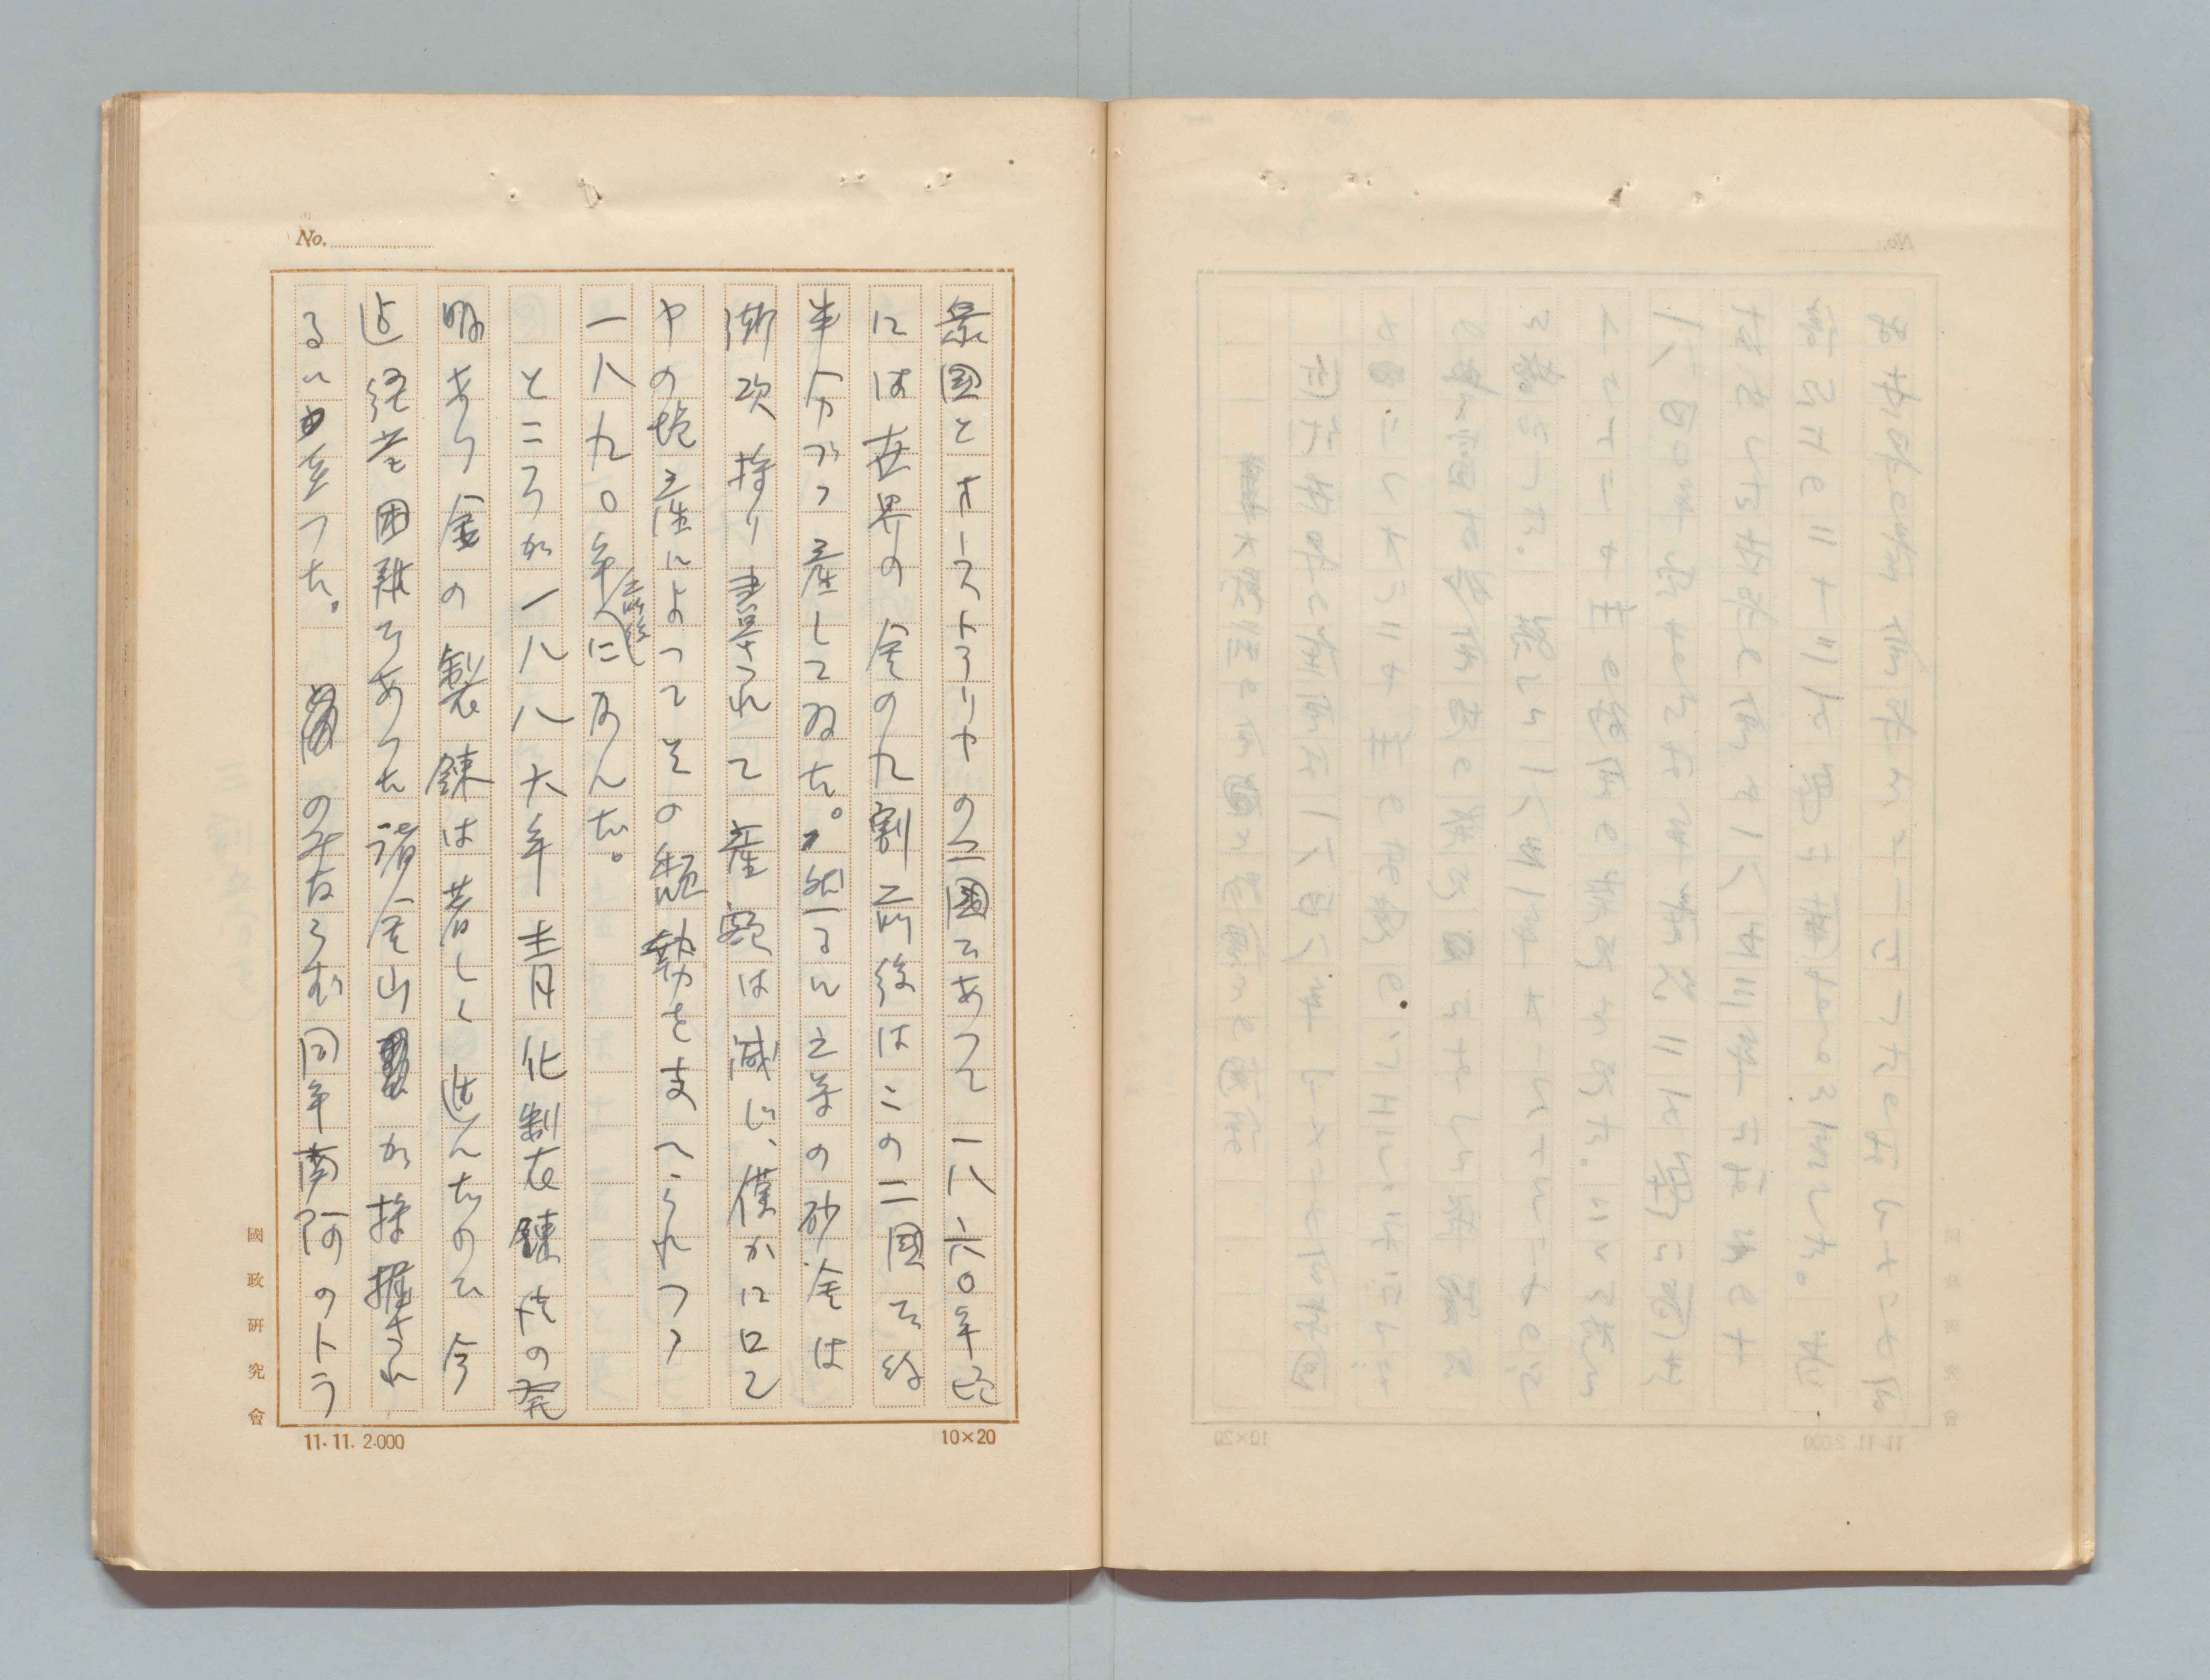 No.
衆国とオーストラリヤの二國であつて一八六〇年迄
には世界の金の九割前後はこの二國で約
半分づつ産してゐた。然るに之等の砂金は
漸次掘り盡されて産額は減じ、僅かにロシ
ヤの増産によつてその頽勢を支へられつつ
一八九〇年前後に及んだ。
ところが一八八六年青化製錬法の発
明あり金の製錬は著しく進んだので今
迄経営困難であつた諸金山が採掘され
るに至つた。のみならず同年南阿のトラ
國政研究會
11. 11. 2.000
10×20